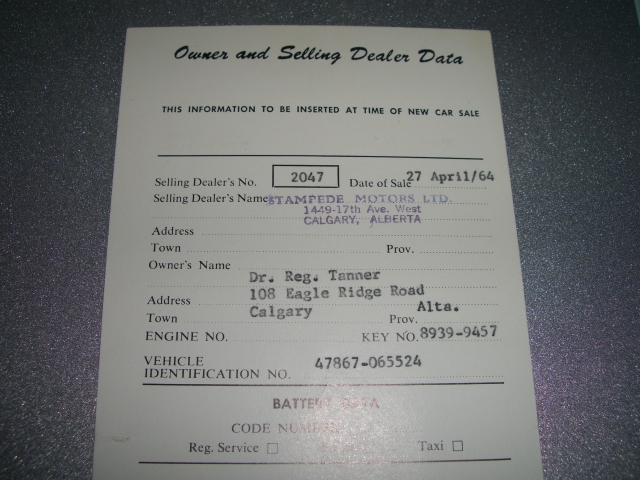 Owner and Selling Dealer Data
THIS INFORMATION TO BE INSERTED AT TIME OF NEW CAR SALE
Selling Dealer's No. 2047 Date of Sale 27 April/64
Selling Dealer's Name STAMPEDE MOTORS LTD.
1449-17th Ave. West
CALGARY, ALBERTA
Address
Town Prov.
Owner's Name
Dr. Reg. Tanner
Address 108 Eagle Ridge Road
Town Calgary Prov. Alta.
ENGINE NO. KEY NO. 8939-9457
VEHICLE
IDENTIFICATION NO. 47867-065524
BATTERY DATA
CODE NUMBER
Reg. Service Taxi